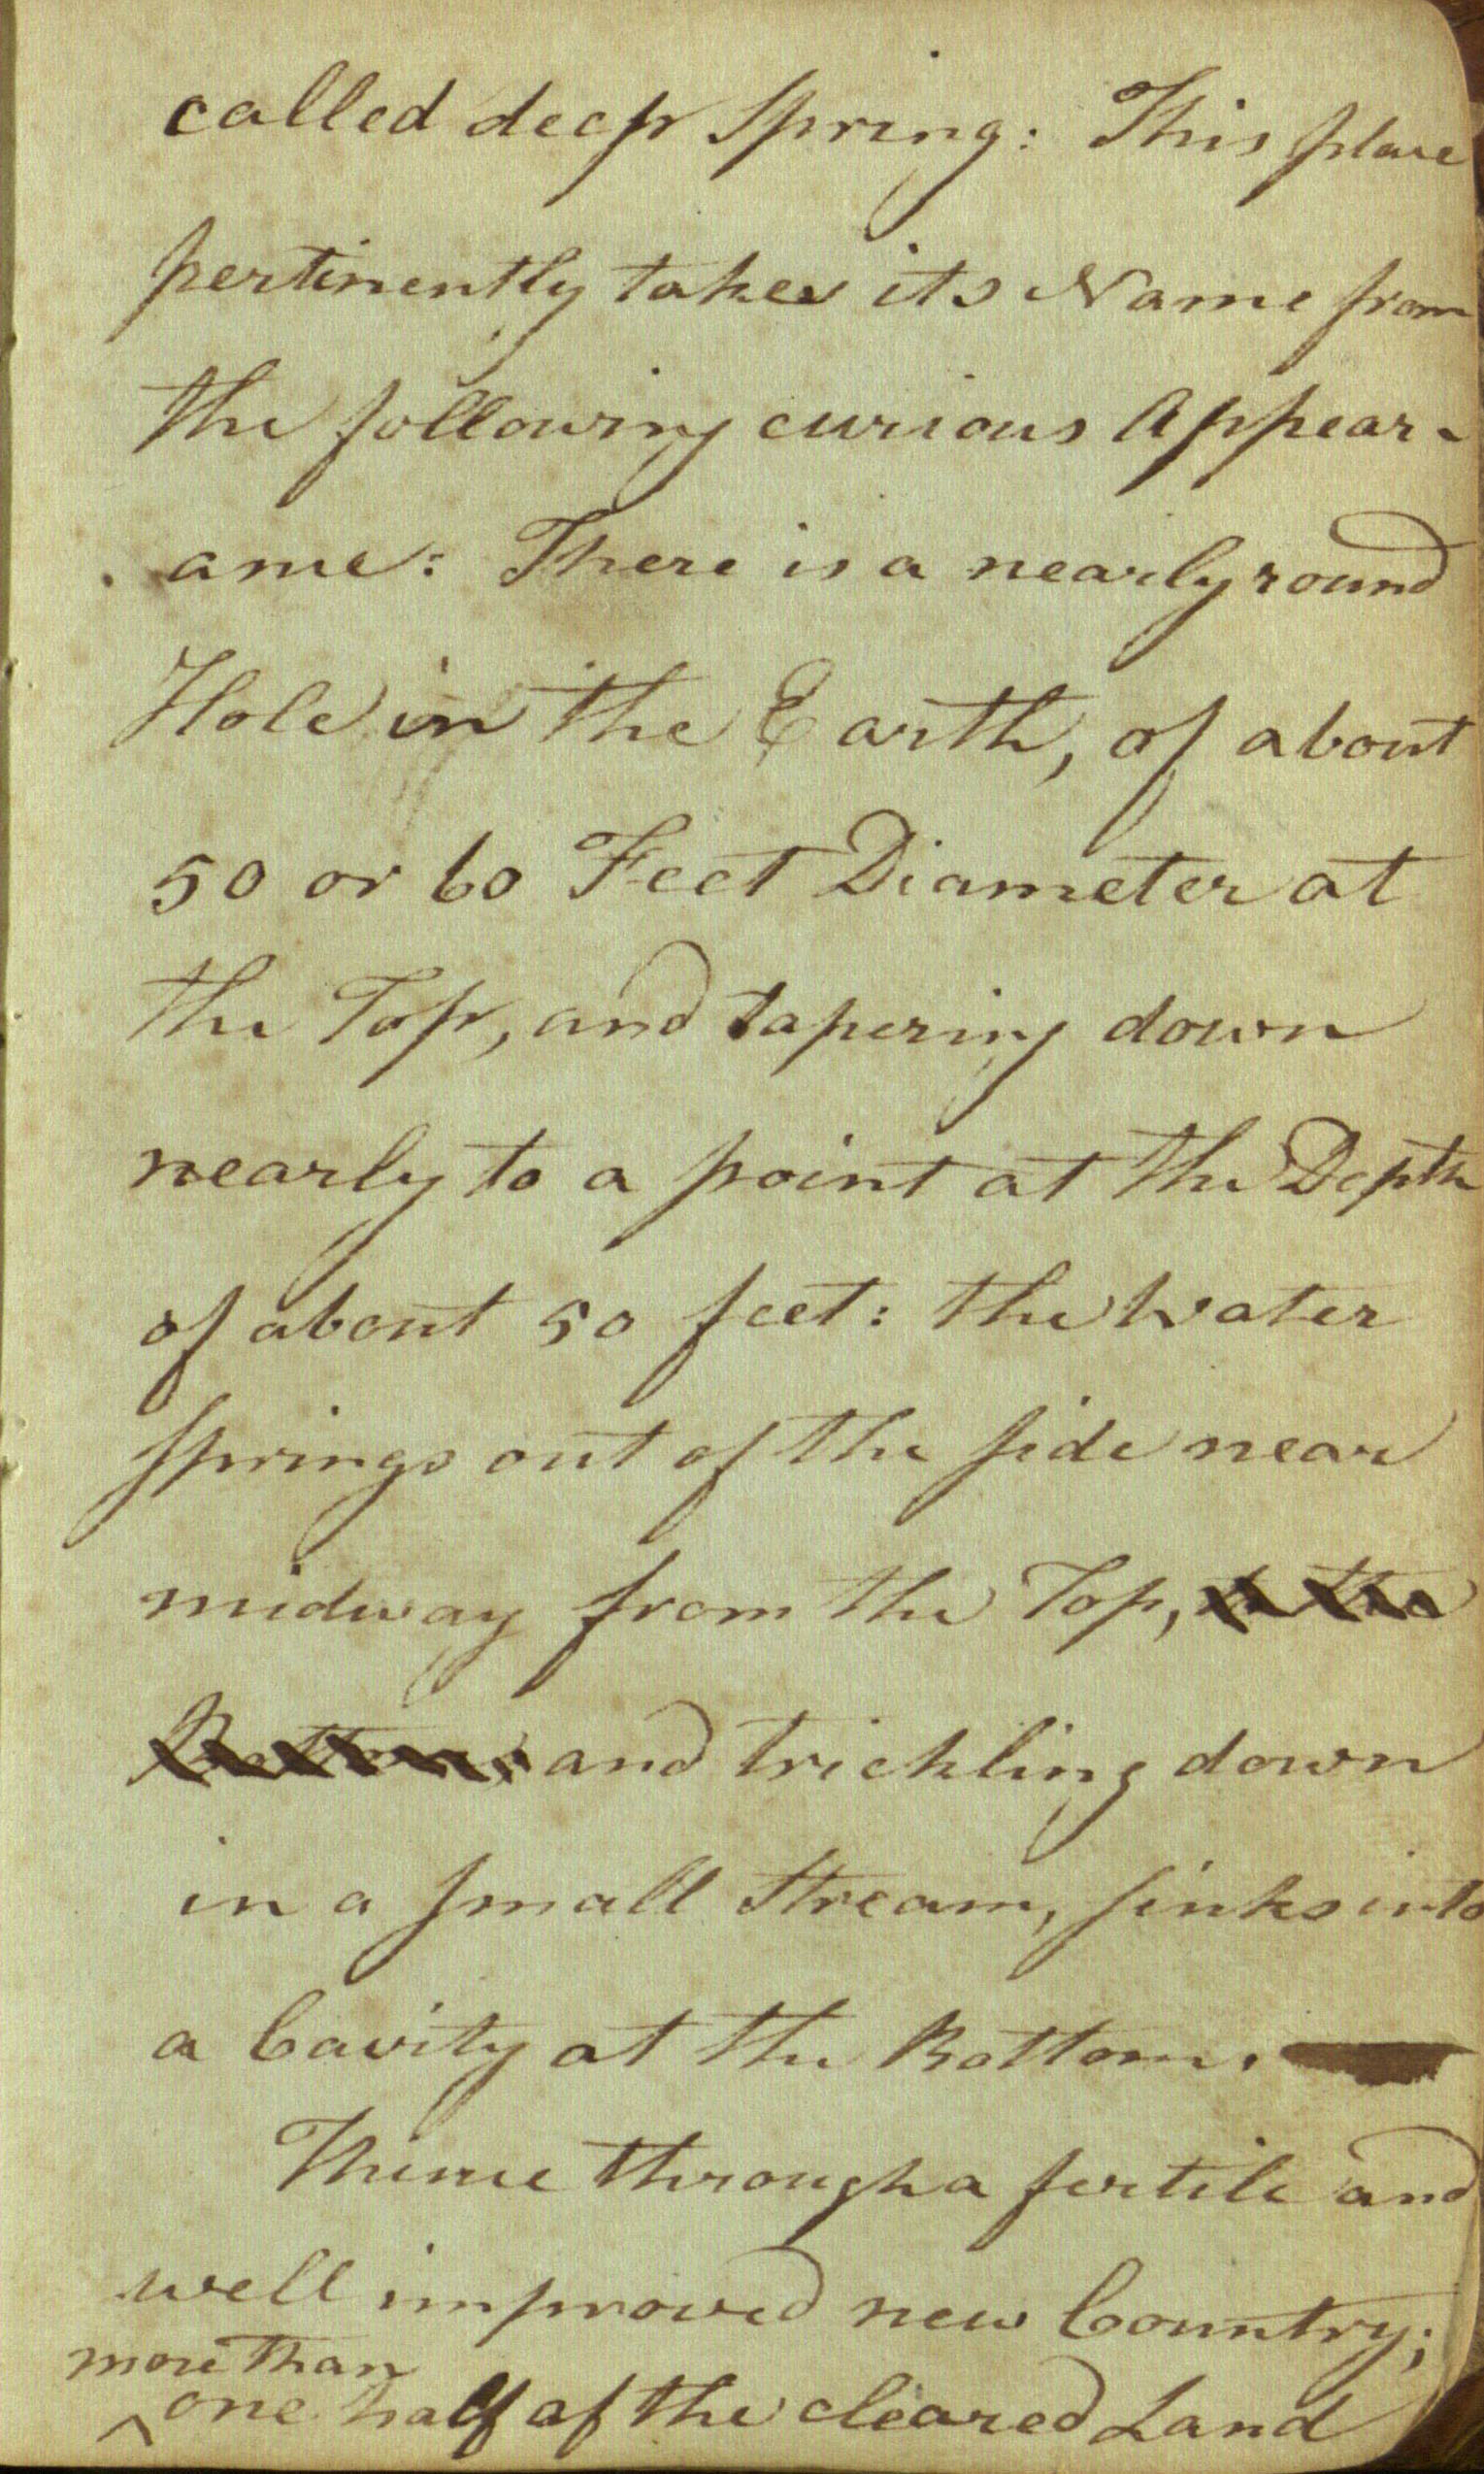 called deep Spring: This place
pertinently takes its Name from
the following curious Appear-
ance: There is a nearly round
Hole in the Earth, of about
50 or 60 Feet Diameter at
the Top, and tapering down
nearly to a point at the Depth
of about 50 feet: the Water
Springs out of the side near
midway from the Top, to the
Bottom; and trickling down
in a small Stream, sinks into
a Cavity at the Bottom.
Thence through a fertile and
well improved new Country;
more than
^one half of the cleared Land